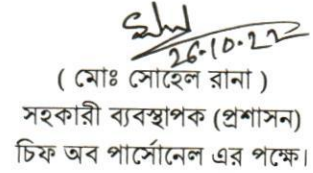 26.10.22
( মোঃ সোহেল রানা )
সহকারী ব্যবস্থাপক (প্রশাসন)
চিফ অব পার্সোনেল এর পক্ষে।